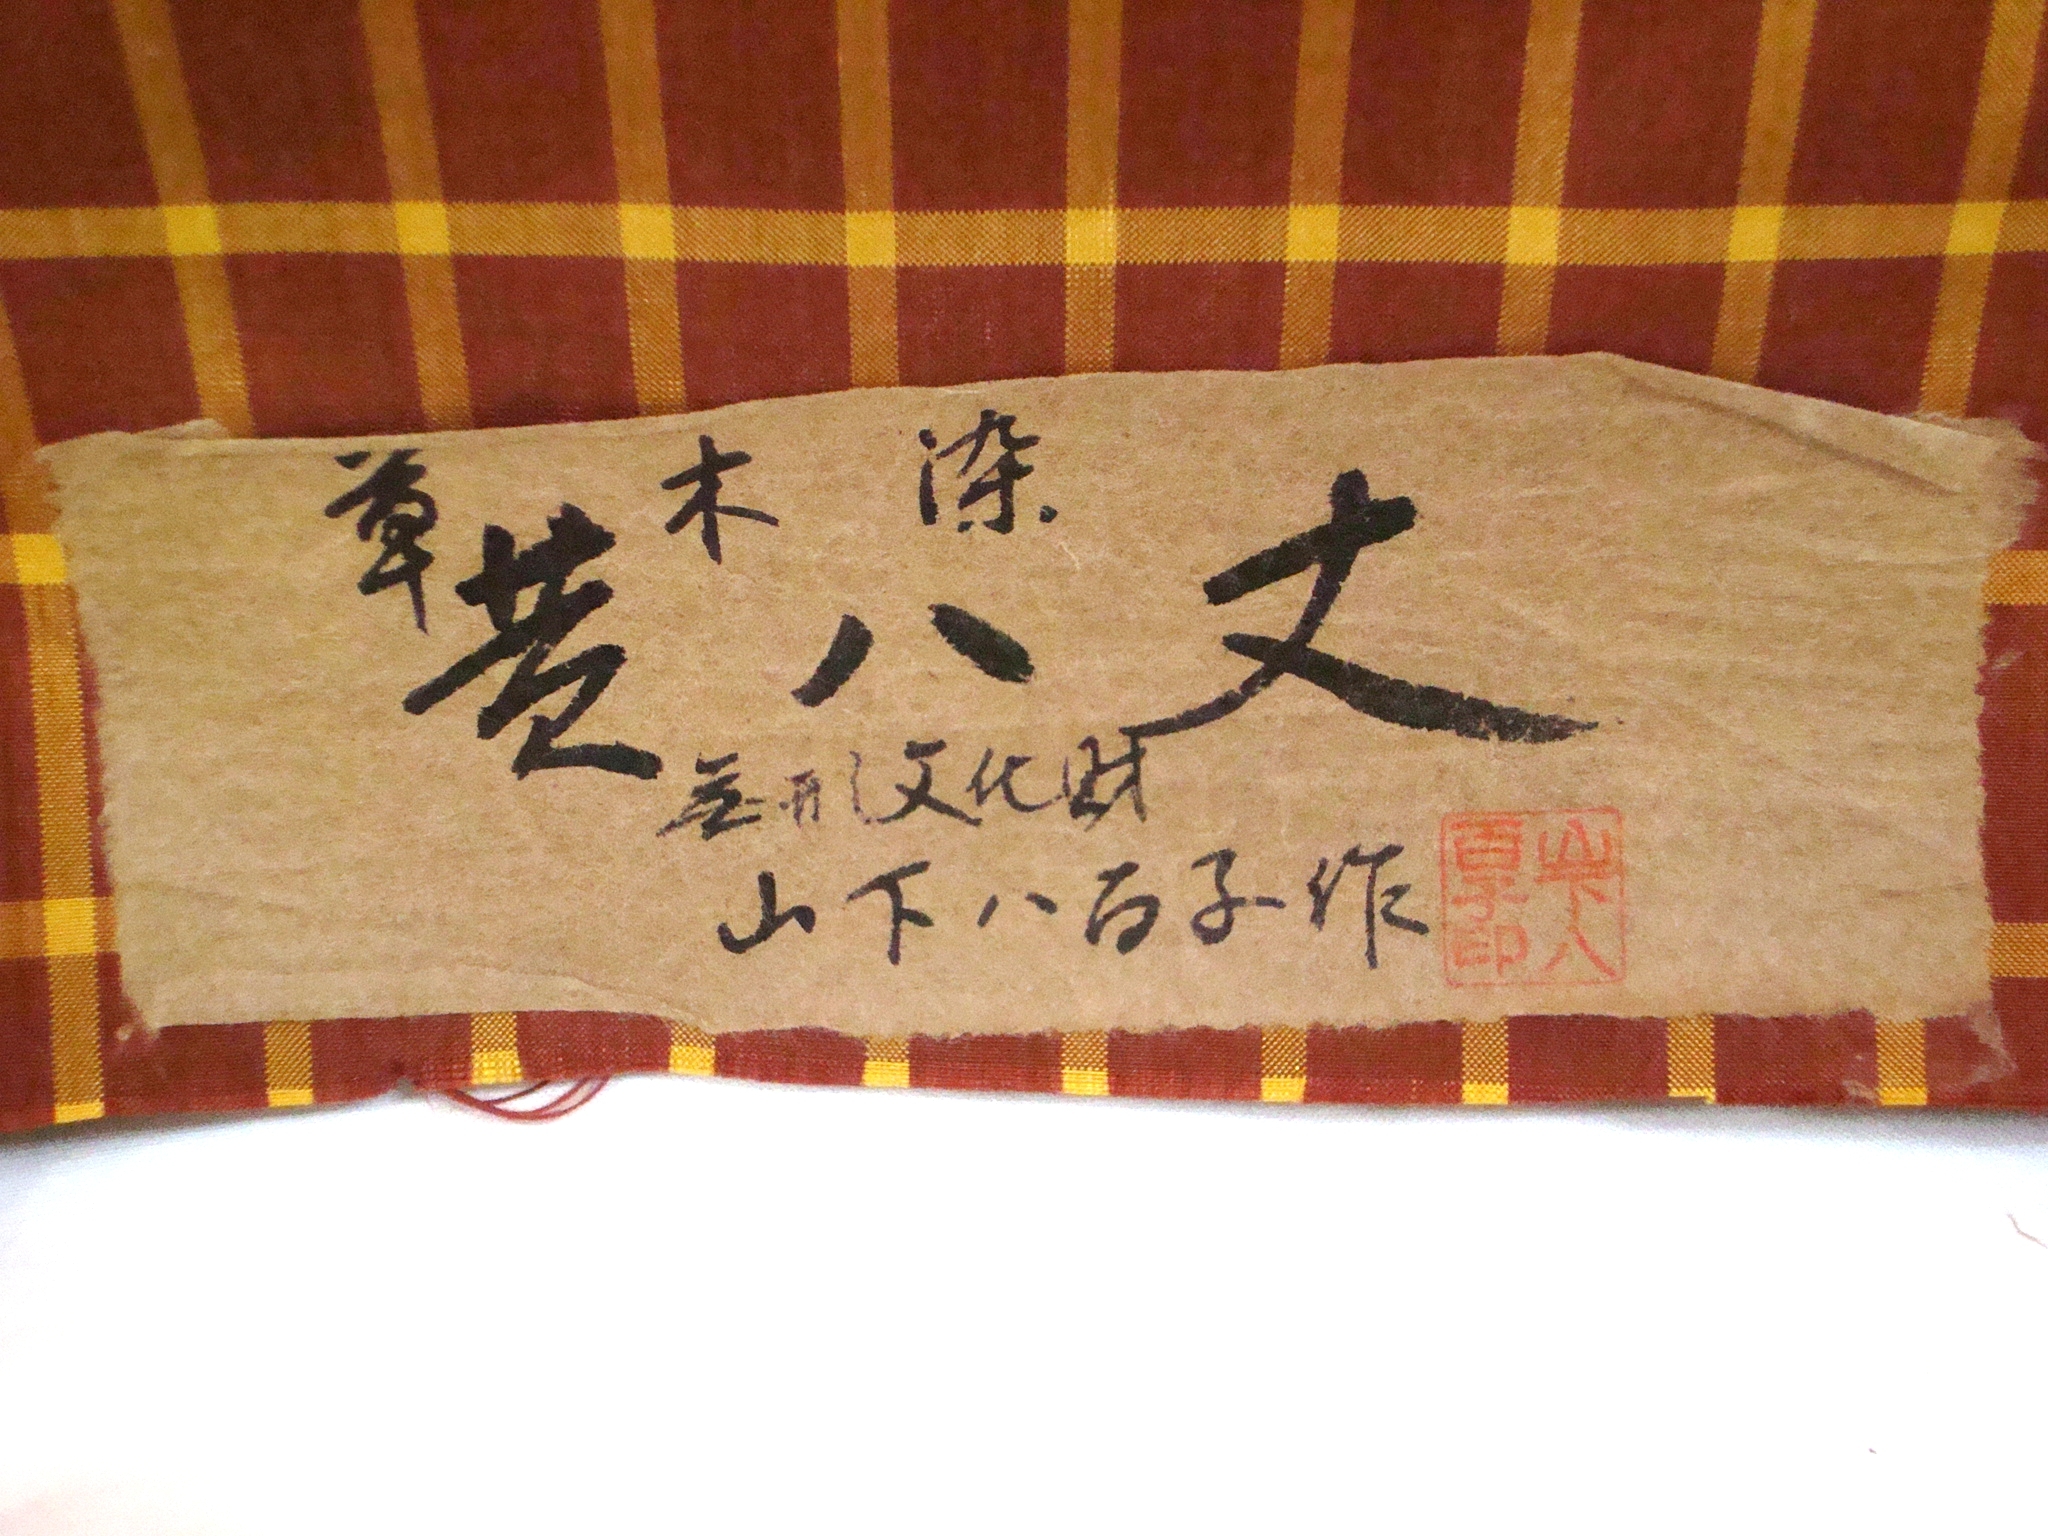 草木染
黄八丈
無形文化財
山下八百子作
山下八
百子印